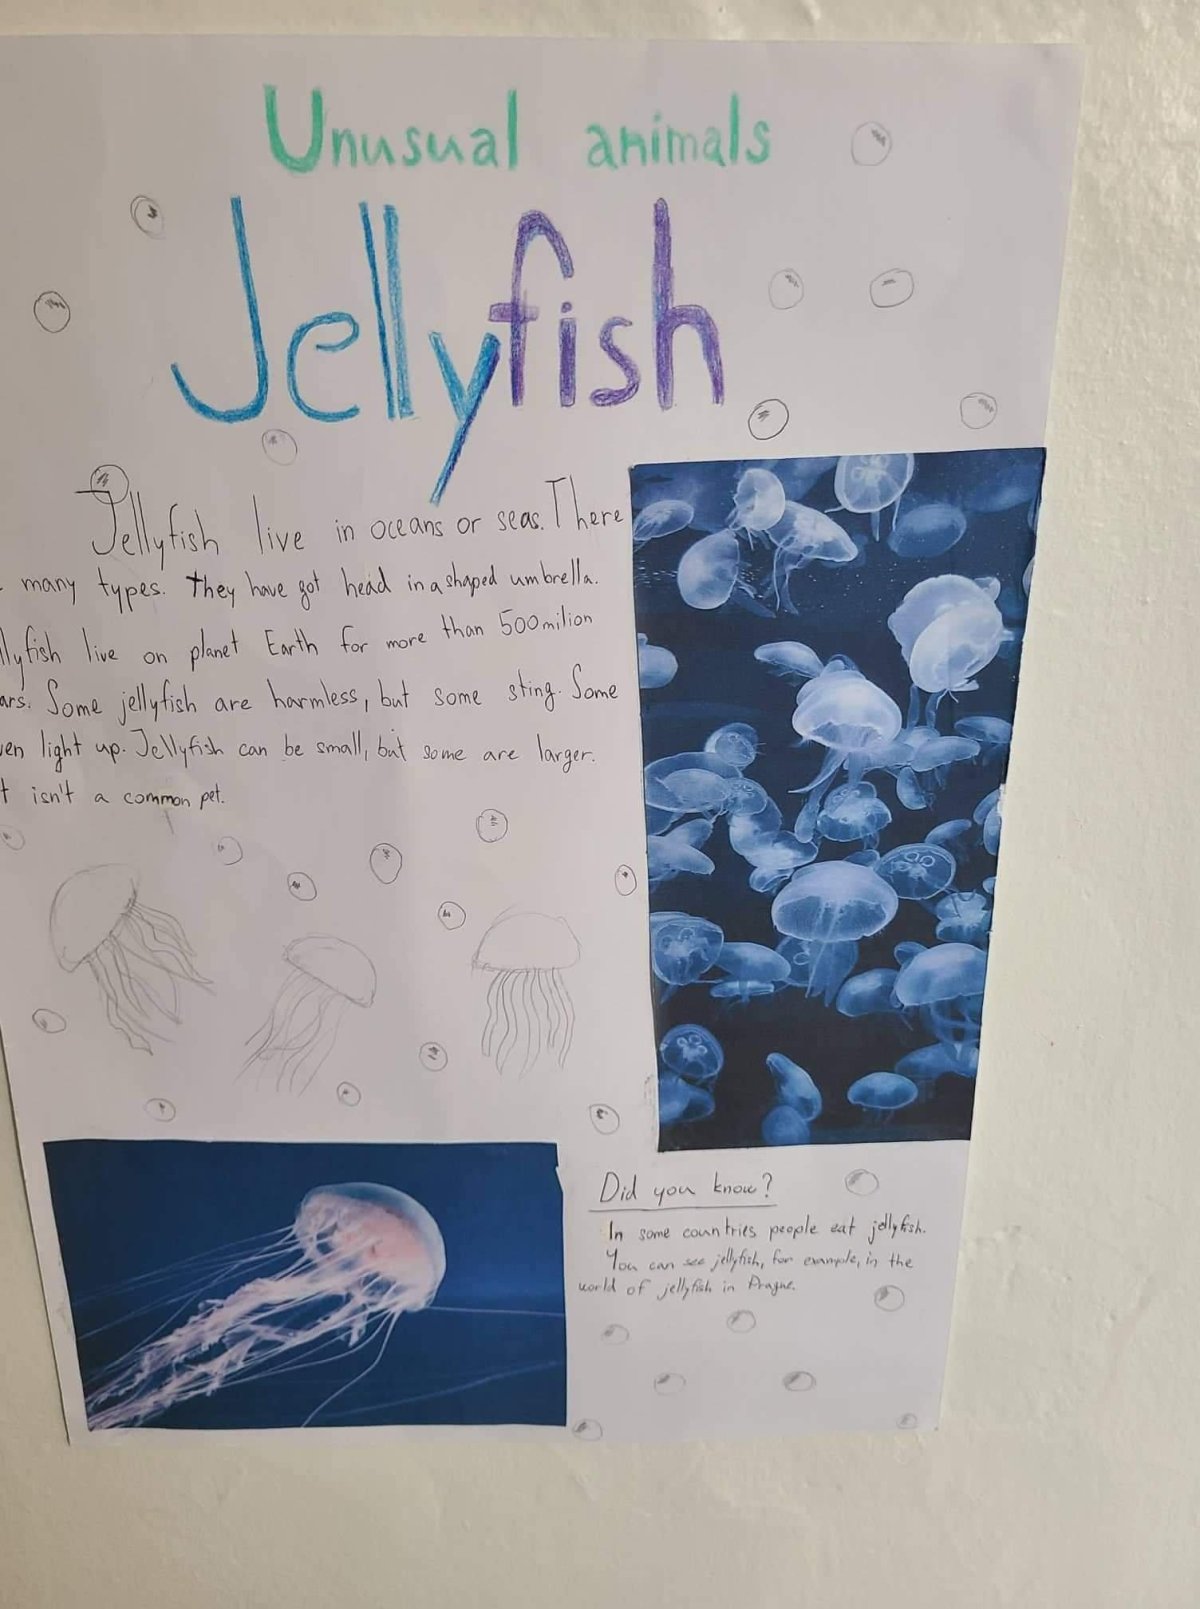 Unusual animals
Jellyfish
Jellyfish live in oceans or seas. There
many types. They have got head in a shaped umbrella.
llyfish live on planet Earth for more than 500 milion
ars. Some jellyfish are harmless, but some sting. Some
en light up. Jellyfish can be small, but some are larger.
t isn't a common pet.
Did you know?
In some countries people eat jellyfish.
You can see jellyfish, for example, in the
world of jellyfish in Prague.